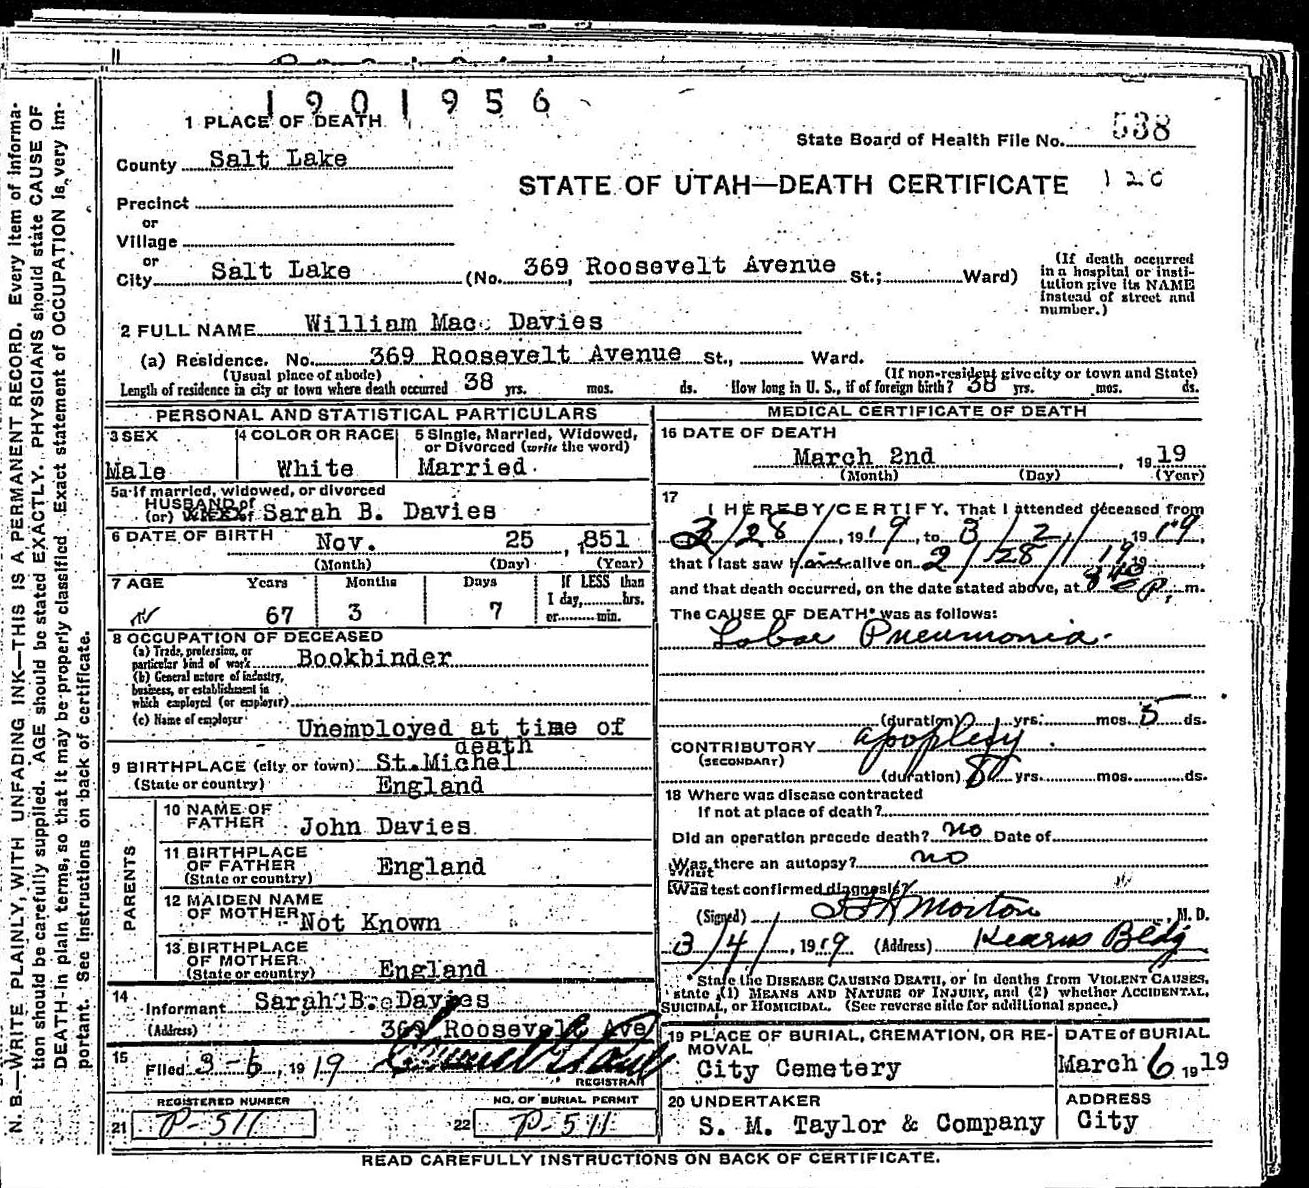 1901956
1 PLACE OF DEATH
State Board of Health File No. 538
County Salt Lake
STATE OF UTAH—DEATH CERTIFICATE 120
Precinct
or
Village
or
City Salt Lake (No. 369 Roosevelt Avenue St.; Ward)
(If death occurred
in a hospital or insti-
tution give its NAME
instead of street and
number.)
2 FULL NAME William Mac Davies
(a) Residence. No. 369 Roosevelt Avenue St., Ward.
(Usual place of abode) (If non-resident give city or town and State)
Length of residence in city or town where death occurred 38 yrs. mos. ds. How long in U. S., if of foreign birth? 38 yrs. mos. ds.
PERSONAL AND STATISTICAL PARTICULARS
3 SEX
Male
4 COLOR OR RACE
White
5 Single, Married, Widowed,
or Divorced (write the word)
Married
5a If married, widowed, or divorced
HUSBAND of
(or) WIFE of Sarah B. Davies
6 DATE OF BIRTH Nov. 25, 1851
(Month) (Day) (Year)
7 AGE Years Months Days If LESS than
1 day, hrs.
67 3 7 or min.
8 OCCUPATION OF DECEASED
(a) Trade, profession, or
particular kind of work Bookbinder
(b) General nature of industry,
business, or establishment in
which employed (or employer)
(c) Name of employer Unemployed at time of
death
9 BIRTHPLACE (city or town) St.Michel
(State or country) England
PARENTS
10 NAME OF
FATHER John Davies
11 BIRTHPLACE
OF FATHER England
(State or country)
12 MAIDEN NAME
OF MOTHER Not Known
13 BIRTHPLACE
OF MOTHER
(State or country) England
14
Informant Sarah B. Davies
(Address) 369 Roosevelt Ave
15
Filed 3-6, 1919
REGISTRAR
REGISTERED NUMBER
21 P-511
NO. OF BURIAL PERMIT
22 P-511
MEDICAL CERTIFICATE OF DEATH
16 DATE OF DEATH
March 2nd, 1919
(Month) (Day) (Year)
17
I HEREBY CERTIFY, That I attended deceased from
2/28/, 1919, to 3/2/, 1919,
that I last saw him alive on 2/28/19, 19
and that death occurred, on the date stated above, at 8 40 P. m.
The CAUSE OF DEATH* was as follows:
Lobar Pneumonia
(duration) yrs. mos. 5 ds.
CONTRIBUTORY apoplexy
(SECONDARY)
(duration) 8 yrs. mos. ds.
18 Where was disease contracted
if not at place of death?
Did an operation precede death? no Date of
Was there an autopsy? no
What
Was test confirmed diagnosis?
(Signed) Morton, M. D.
3/4/, 1919 (Address) Kearns Bldg
* State the DISEASE CAUSING DEATH, or in deaths from VIOLENT CAUSES,
state (1) MEANS AND NATURE OF INJURY, and (2) whether ACCIDENTAL,
SUICIDAL, or HOMICIDAL. (See reverse side for additional space.)
19 PLACE OF BURIAL, CREMATION, OR RE-
MOVAL
City Cemetery
DATE of BURIAL
March 6, 1919
20 UNDERTAKER
S. M. Taylor & Company
ADDRESS
City
READ CAREFULLY INSTRUCTIONS ON BACK OF CERTIFICATE.
N. B.—WRITE PLAINLY, WITH UNFADING INK—THIS IS A PERMANENT RECORD. Every item of informa-
tion should be carefully supplied. AGE should be stated EXACTLY. PHYSICIANS should state CAUSE OF
DEATH in plain terms, so that it may be properly classified. Exact statement of OCCUPATION is very im-
portant. See instructions on back of certificate.